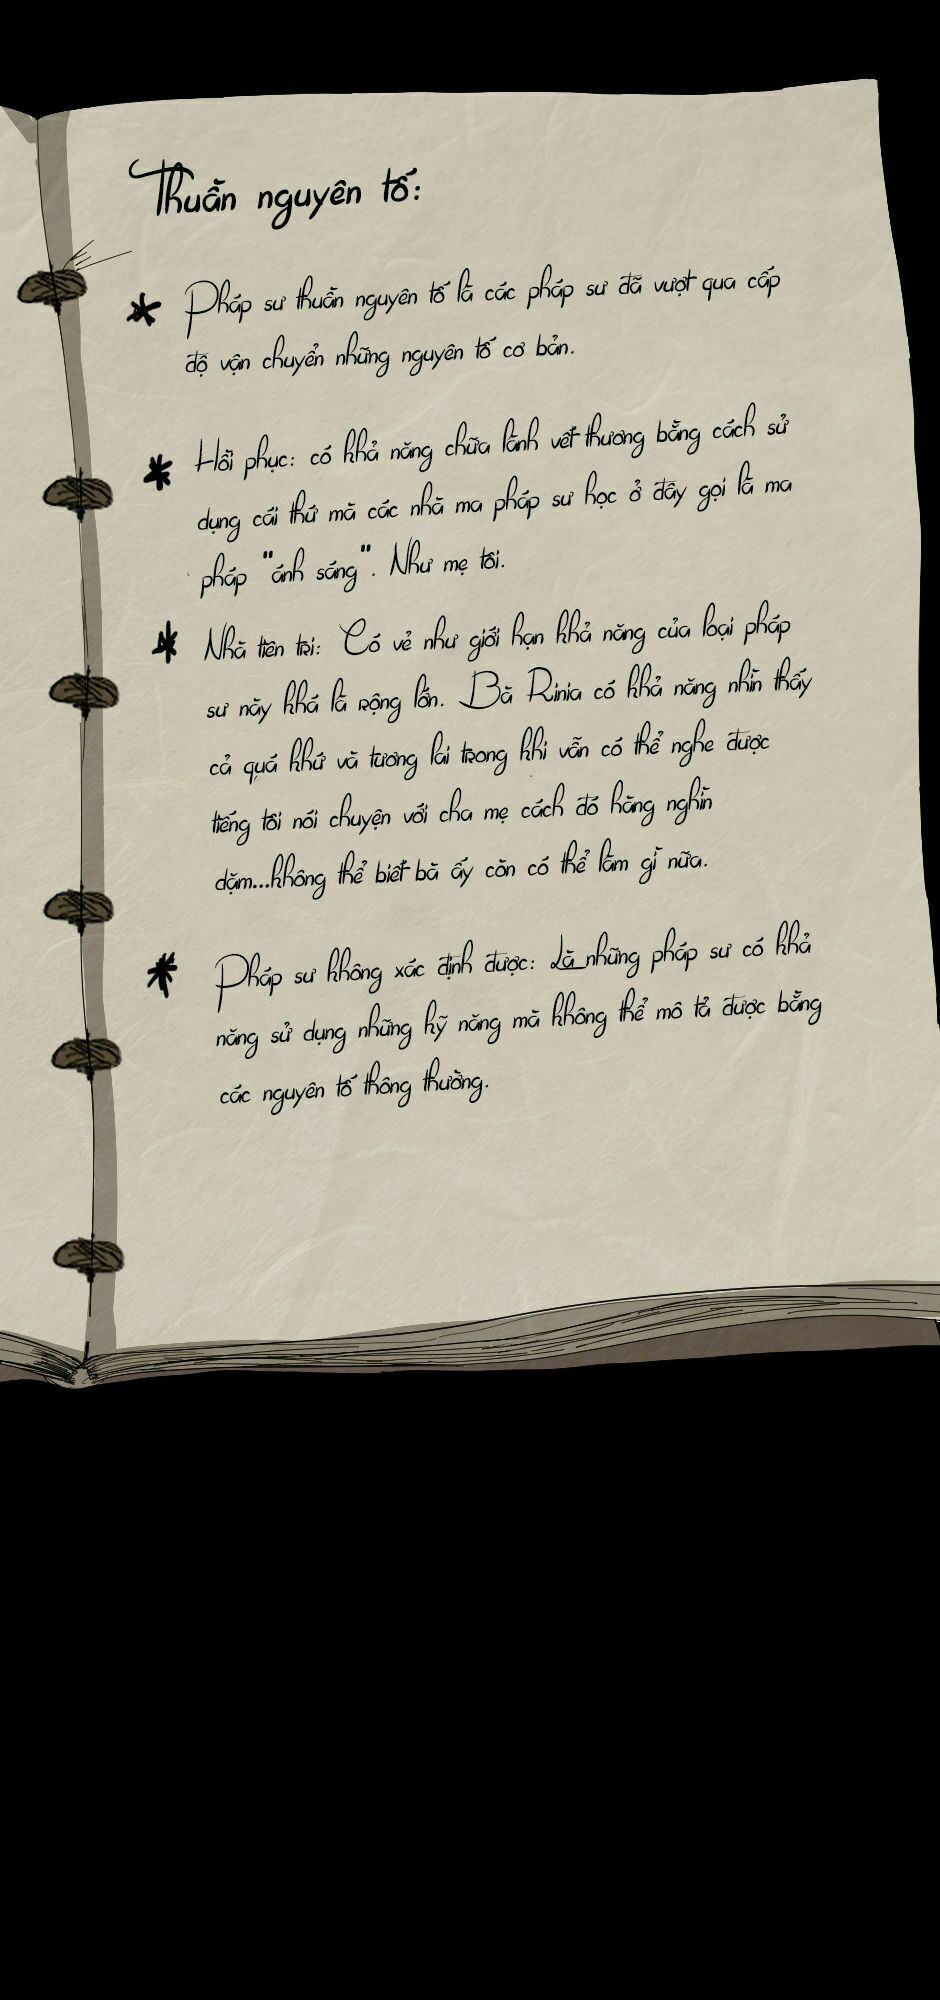 Thuần nguyên tố:
* Pháp sư thuần nguyên tố là các pháp sư đã vượt qua cấp
độ vận chuyển những nguyên tố cơ bản.
* Hồi phục: có khả năng chữa lành vết thương bằng cách sử
dụng cái thứ mà các nhà ma pháp sư học ở đây gọi là ma
pháp "ánh sáng". Như mẹ tôi.
* Nhà tiên tri: Có vẻ như giới hạn khả năng của loại pháp
sư này khá là rộng lớn. Bà Rinia có khả năng nhìn thấy
cả quá khứ và tương lai trong khi vẫn có thể nghe được
tiếng tôi nói chuyện với cha mẹ cách đó hàng nghìn
dặm...không thể biết bà ấy còn có thể làm gì nữa.
* Pháp sư không xác định được: Là những pháp sư có khả
năng sử dụng những kỹ năng mà không thể mô tả được bằng
các nguyên tố thông thường.